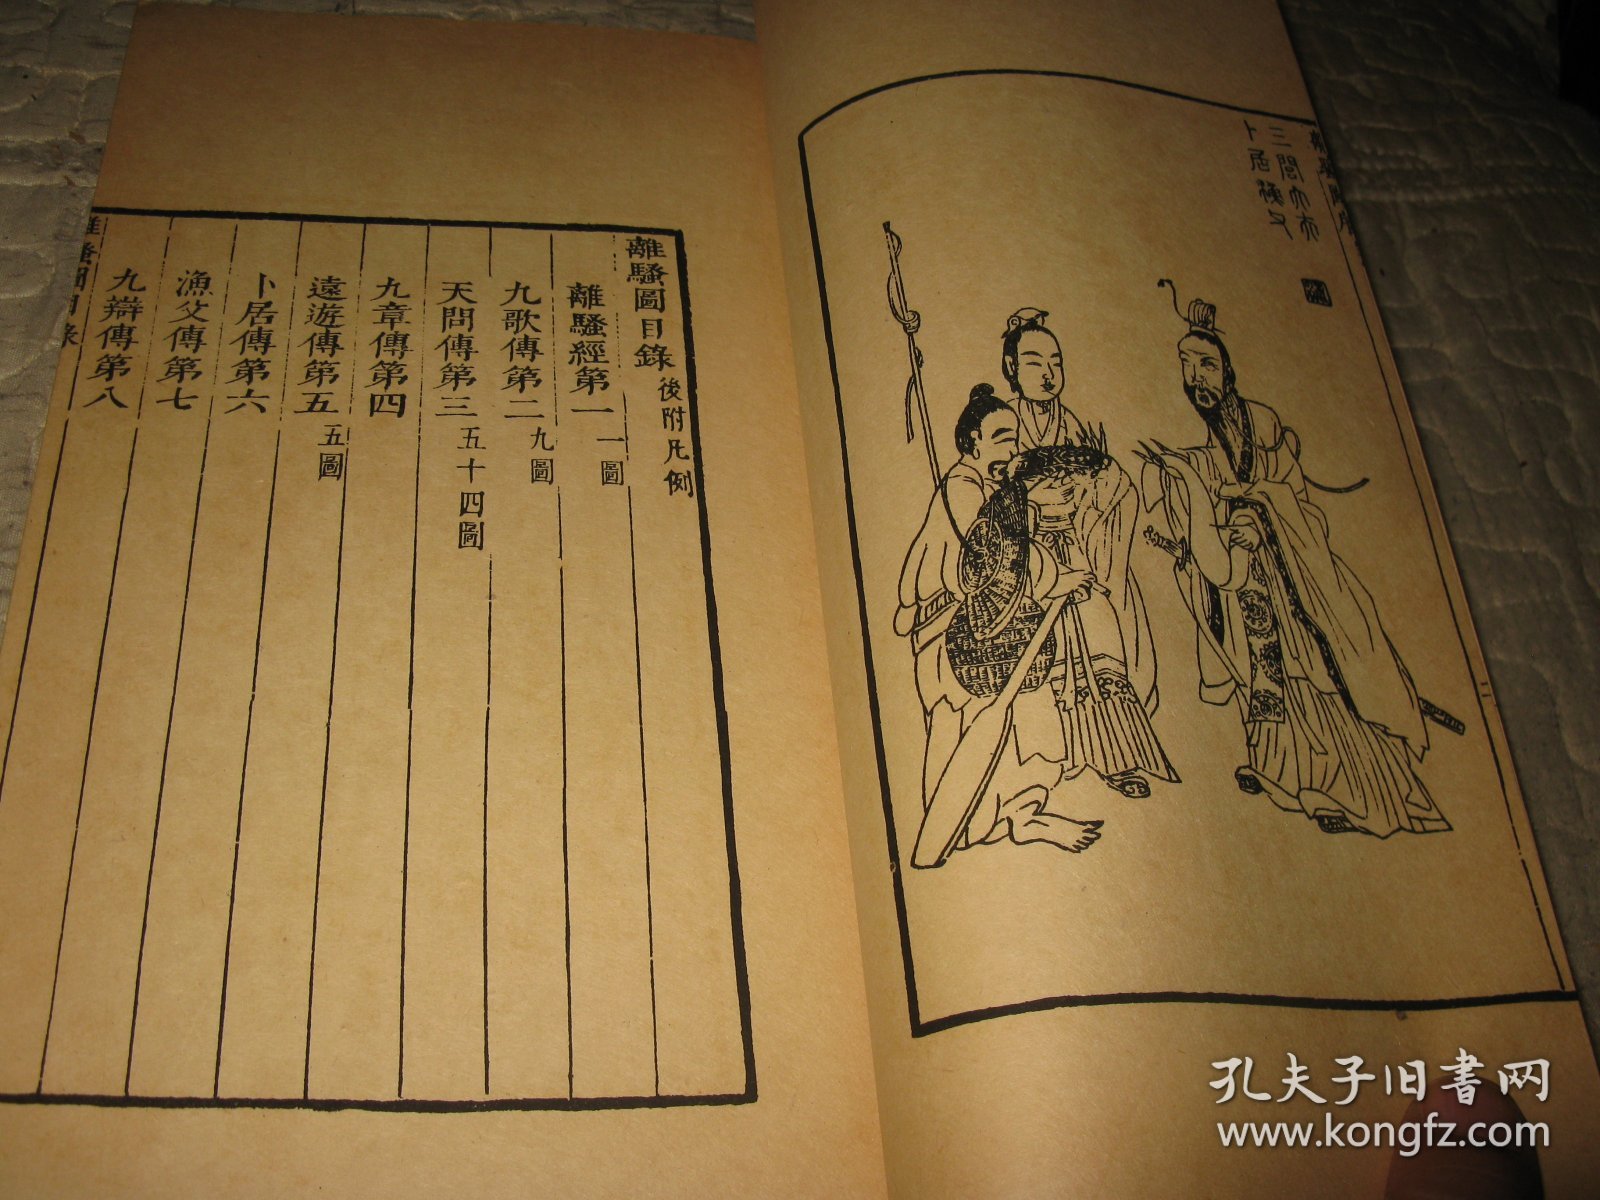 三閭大夫
卜居漁父
離騷圖目錄 後附凡例
離騷經第一 一圖
九歌傳第二 九圖
天問傳第三 五十四圖
九章傳第四
遠遊傳第五 五圖
卜居傳第六
漁父傳第七
九辯傳第八
離騷圖目錄
孔夫子旧书网
www.kongfz.com